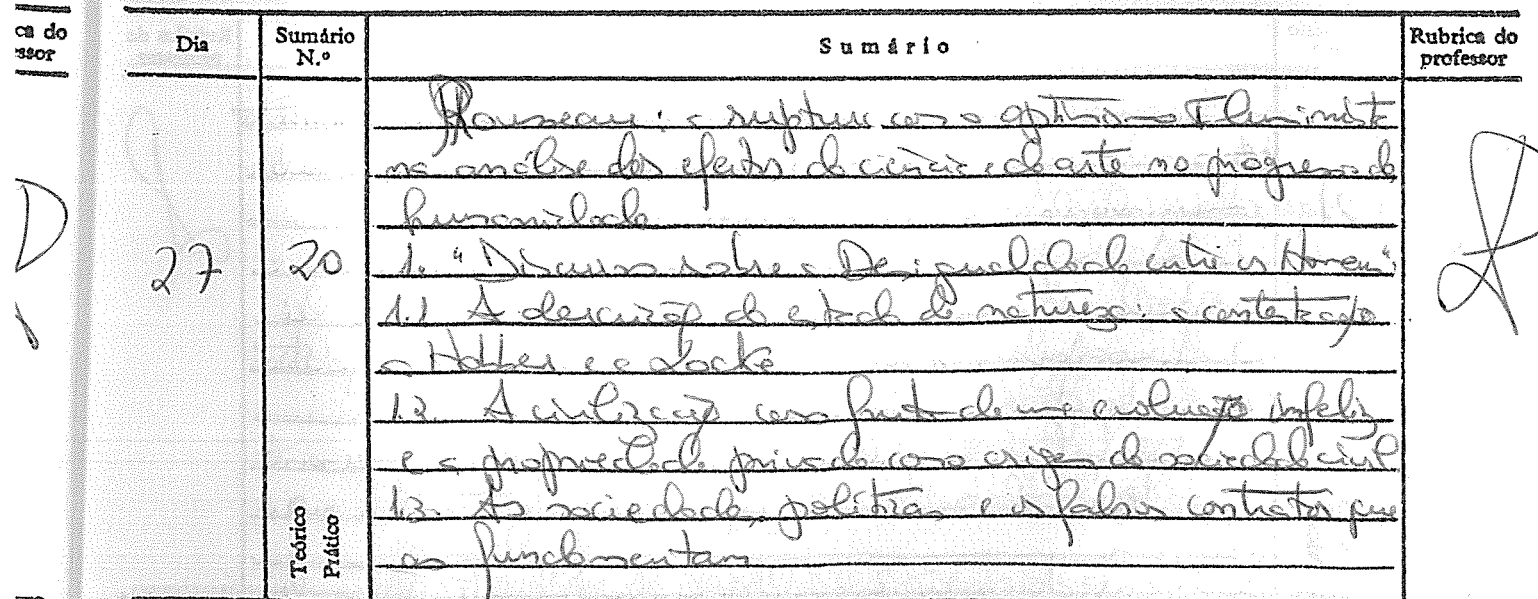 ca do
ssor
Dia
Sumário
N.º
Sumário
Rubrica do
professor
Rousseau: a ruptura com o optimismo Iluminista
na análise dos efeitos da ciência e da arte no progresso da
humanidade
27
20
1. "Discurso sobre a Desigualdade entre os Homens":
1.1 A descrição do estado de natureza: a contestação
a Hobbes e a Locke
1.2. A civilização como fruto de uma evolução infeliz
e a propriedade privada como origem da sociedade civil
1.3. As sociedades políticas e os falsos contratos que
as fundamentam
Teórico
Prático